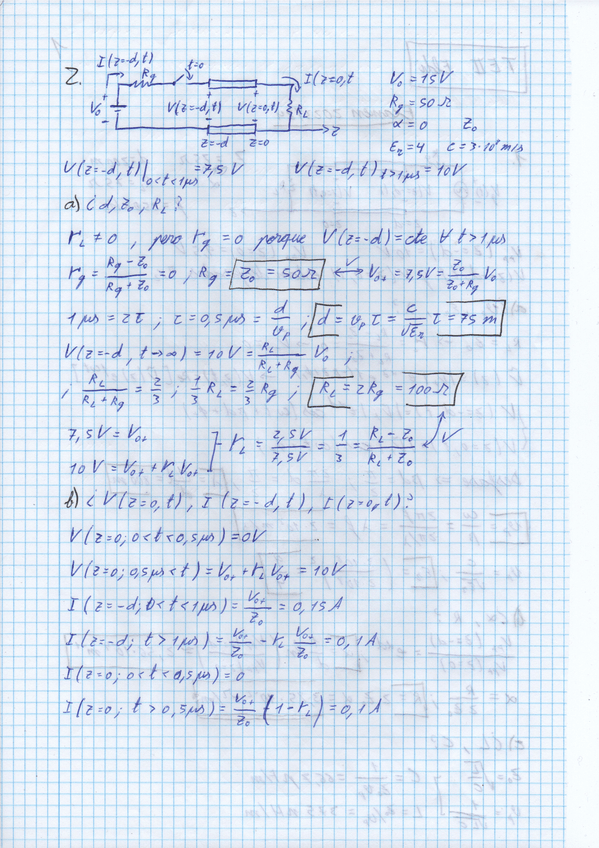 2.
I(z=-d,t)
Rg
t=0
I(z=0,t
V₀
+
-
V(z=-d,t)
V(z=0,t)
R_L
z=-d
z=0
z
V₀ = 15V
Rg = 50Ω
α = 0   Z₀
εᵣ = 4   c = 3·10⁸ m/s
V(z=-d,t)|₀<t<1μs = 7,5 V   V(z=-d,t)ₜ>1μs = 10V
a) ¿ d, Z₀, R_L ?
r_L ≠ 0 , pero rg = 0 porque V(z=-d) = cte ∀ t > 1μs
rg = (Rg - Z₀)/(Rg + Z₀) = 0 ; Rg = Z₀ = 50Ω ⟷ V₀₊ = 7,5V = Z₀/(Z₀+Rg) V₀
1μs = 2τ ; τ = 0,5μs = d/vₚ ; d = vₚ τ = c/√εᵣ τ = 75 m
V(z=-d, t→∞) = 10V = R_L/(R_L+Rg) V₀ ;
; R_L/(R_L+Rg) = 2/3 ; 1/3 R_L = 2/3 Rg ; R_L = 2Rg = 100Ω
7,5V = V₀₊
10V = V₀₊ + r_L V₀₊
r_L = 2,5V/7,5V = 1/3 = (R_L - Z₀)/(R_L + Z₀)
b) ¿ V(z=0,t) , I(z=-d,t) , I(z=0,t)?
V(z=0; 0<t<0,5μs) = 0V
V(z=0; 0,5μs<t) = V₀₊ + r_L V₀₊ = 10V
I(z=-d; 0<t<1μs) = V₀₊/Z₀ = 0,15A
I(z=-d; t>1μs) = V₀₊/Z₀ - r_L V₀₊/Z₀ = 0,1A
I(z=0; 0<t<0,5μs) = 0
I(z=0; t>0,5μs) = V₀₊/Z₀ (1-r_L) = 0,1A